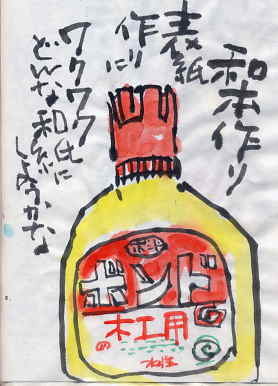 和本作り
表紙
作りに
ワクワク
どんな和紙に
しようかな
ボンド
木工用